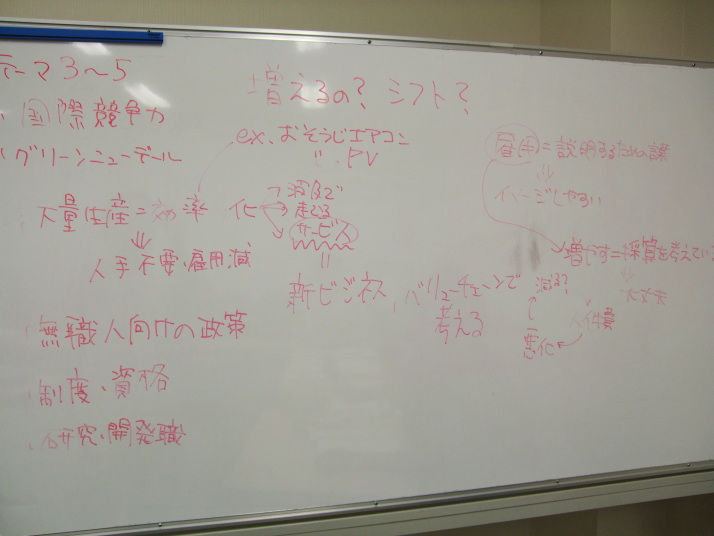 テーマ3～5
・国際競争力
・グリーンニューディール
・大量生産=効率化
⇓
人手不要・雇用減
・無職人向けの政策
・制度・資格
・研究・開発職
増えるの? シフト?
ex. おそうじエアコン
〃 . PV
サービス
=
新ビジネス, バリューチェーンで
考える
雇用=説明するための課
⇓
イメージしやすい
増やす=採算を考えてい
⇓
大丈夫
減る?
↑
悪化
人件費